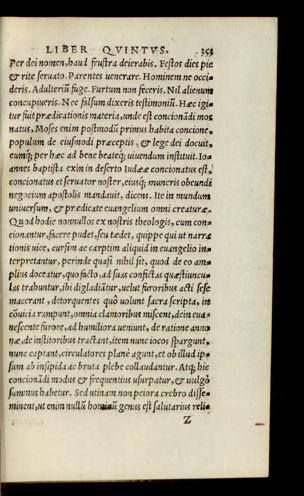 LIBER QVINTVS. 353
Per dei nomen, haud frustra deierabis. Festos dies pie
& rite seruato. Parentes uenerare. Hominem ne occi-
deris. Adulteriū fuge. Furtum non feceris. Nil alienum
concupiueris. Nec falsum dixeris testimoniū. Hæc igi-
tur fuit prædicationis materia, unde est concionādi mos
natus, Moses enim postmodū primus habita concione,
populum de eiusmodi præceptis, & lege dei docuit,
eumq́; per hæc ad bene beateq́; uiuendum instituit. Io-
annes baptista exin in deserto Iudææ concionatus est,
concionatus et seruator noster, eiusq́; muneris obeundi
negocium apostolis mandauit, dicens. Ite in mundum
uniuersum, & prædicate euangelium omni creaturæ.
Quod hodie nonnullos ex nostris theologis, cum con-
cionantur, facere pudet, seu tædet, quippe qui ut narra
tionis uice, cursim ac carptim aliquid in euangelio in-
terpretantur, perinde quasi nihil sit, quod de eo am-
plius doceatur, quo facto, ad suas confictas quæstiuncu-
las trahuntur, ibi digladiātur, uelut furoribus acti sese
macerant, detorquentes quò uolunt sacra scripta, in
cōuicia rumpunt, omnia clamoribus miscent, dein eua-
nescente furore, ad humiliora ueniunt, de ratione anno
næ, de institoribus tractant, item nunc iocos spargunt,
nunc captant, circulatores planè agunt, et ob illud ip-
sum ab insipida ac bruta plebe collaudantur. Atq́; hic
concionādi modus & frequentius usurpatur, & uulgò
summus habetur. Sed utinam non peiora crebro disse-
minent, ut enim nullū hominū genus est salutarius reli-
Z